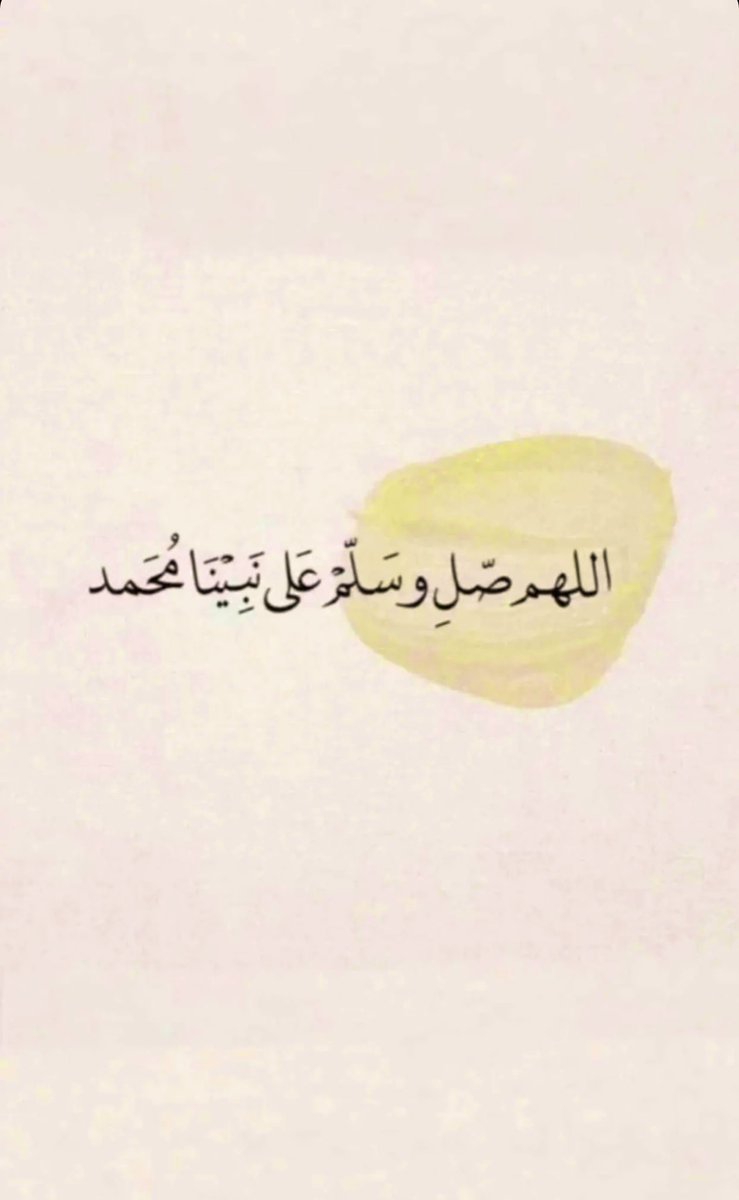 اللهم صّلِ و سَلّمْ عَلى نَبِيْنَا مُحَمد